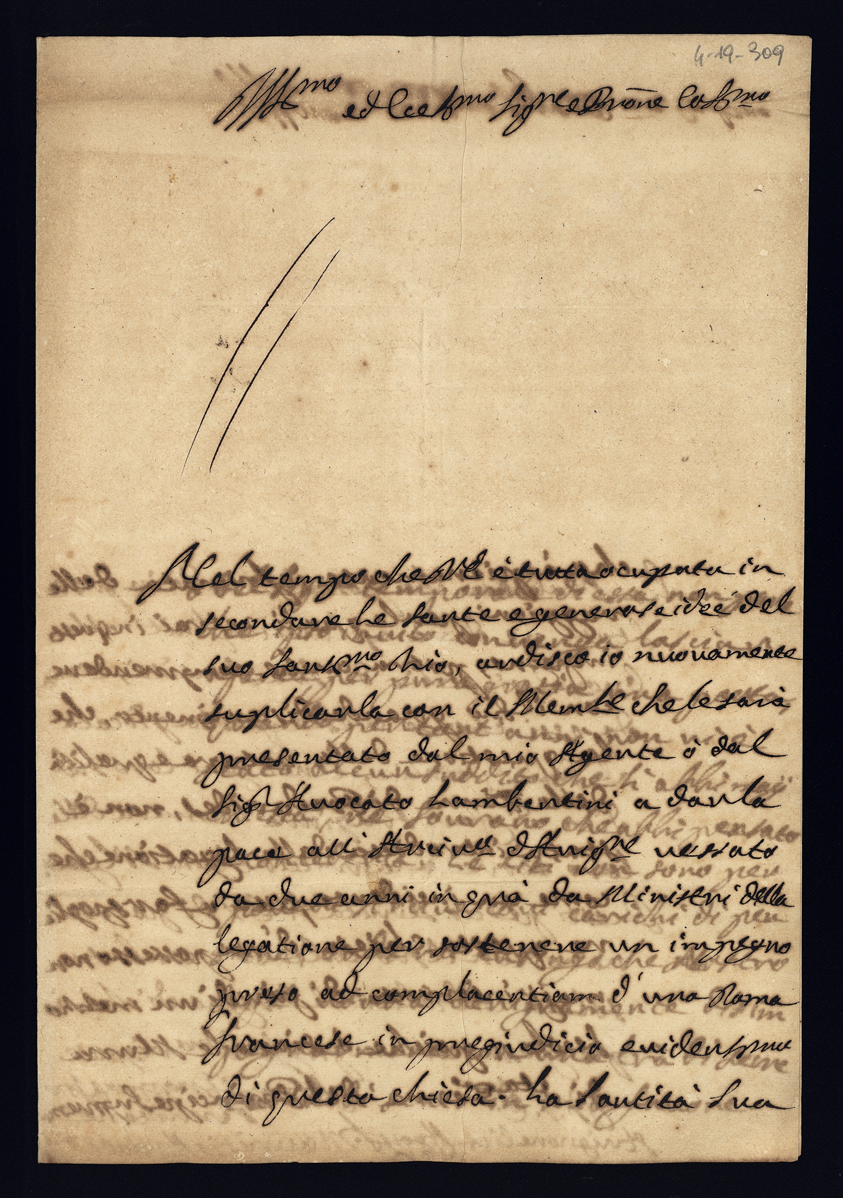 4-19-309
Ill.mo ed Ecc.mo Sig.re e Prōne Col.mo
Nel tempo che V.E. è tutta ocupata in
secondare le sante e generose idee del
suo Sant.mo Zio, ardisco io nuovamente
suplicarla con il Mem.le che le sarà
presentato dal mio Agente ò dal
Sig.r Avocato Lambertini a dar la
pace all' Arciv.o d'Avig.ne vessato
da due anni in quà da Ministri della
legatione per sostenere un impegno
preso ad complacentiam d'una Dama
francese in pregiudicio evident.mo
di questa chiesa. ha Santità Sua